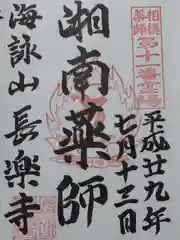 相模
薬師
第十一番霊場
平成廿九年
七月十三日
湘南薬師
海詠山
長楽寺